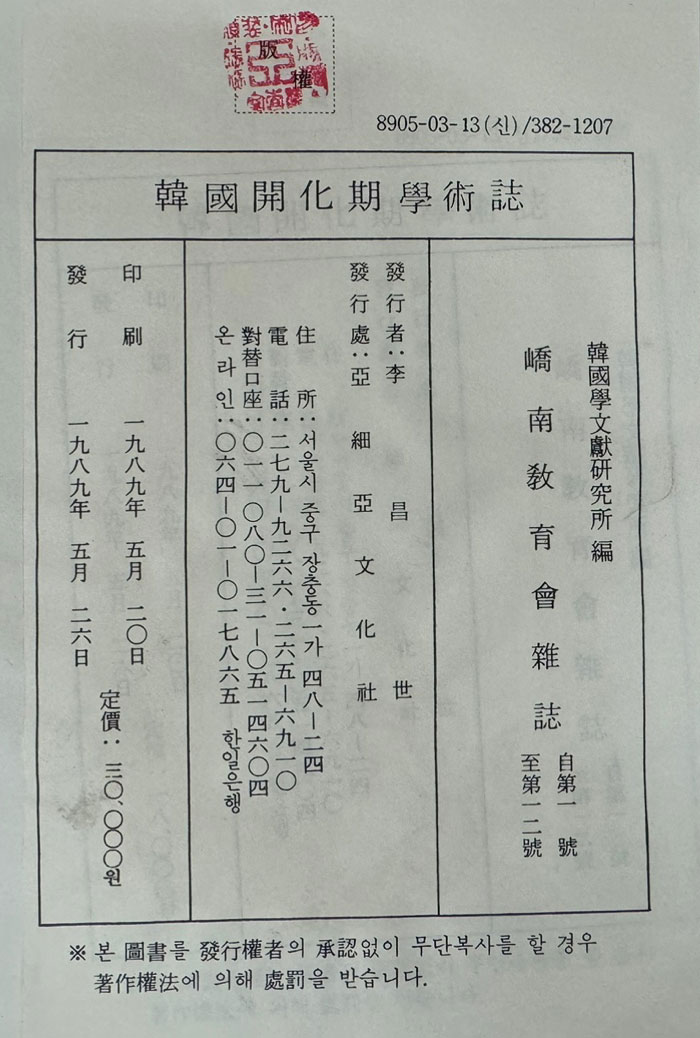 版權
8905-03-13(신)/382-1207
韓國開化期學術誌
韓國學文獻硏究所 編
嶠南敎育會雜誌
自第一號
至第一二號
發行者:李昌世
發行處:亞細亞文化社
住所:서울시 중구 장충동 一가 四八—二四
電話:二七九—九二六六·二六五—六九一〇
對替口座:〇一一〇八〇—三一—〇五一四六〇四
온라인:〇六四—〇一—〇一七八六五 한일은행
印刷 一九八九年 五月 二〇日
發行 一九八九年 五月 二六日
定價: 三〇、〇〇〇원
※ 본 圖書를 發行權者의 承認없이 무단복사를 할 경우
著作權法에 의해 處罰을 받습니다.